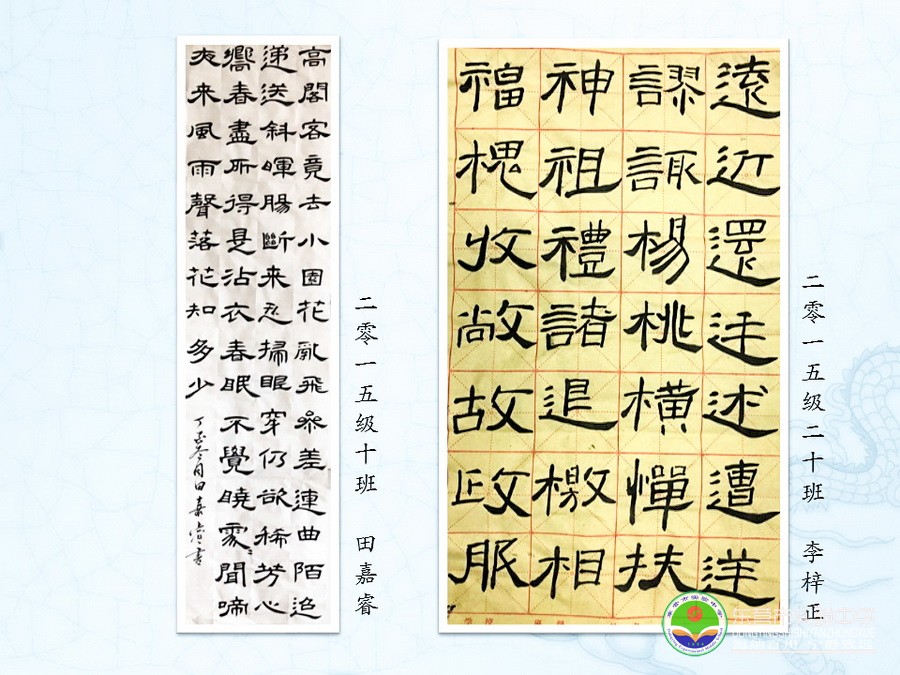 高閣客竟去小園花亂飛參差連曲陌迢
递送斜暉腸斷未忍掃眼穿仍欲稀芳心
嚮春盡所得是沾衣春眠不覺曉處〻聞啼
夜来風雨聲落花知多少
丁酉冬月田嘉睿書
二零一五级十班 田嘉睿
遠近還述遭
謬諏楊桃橫憚扶
神祖禮諸退檄相
福槐收敞故政服
二零一五级二十班 李梓正
东营市实验中学